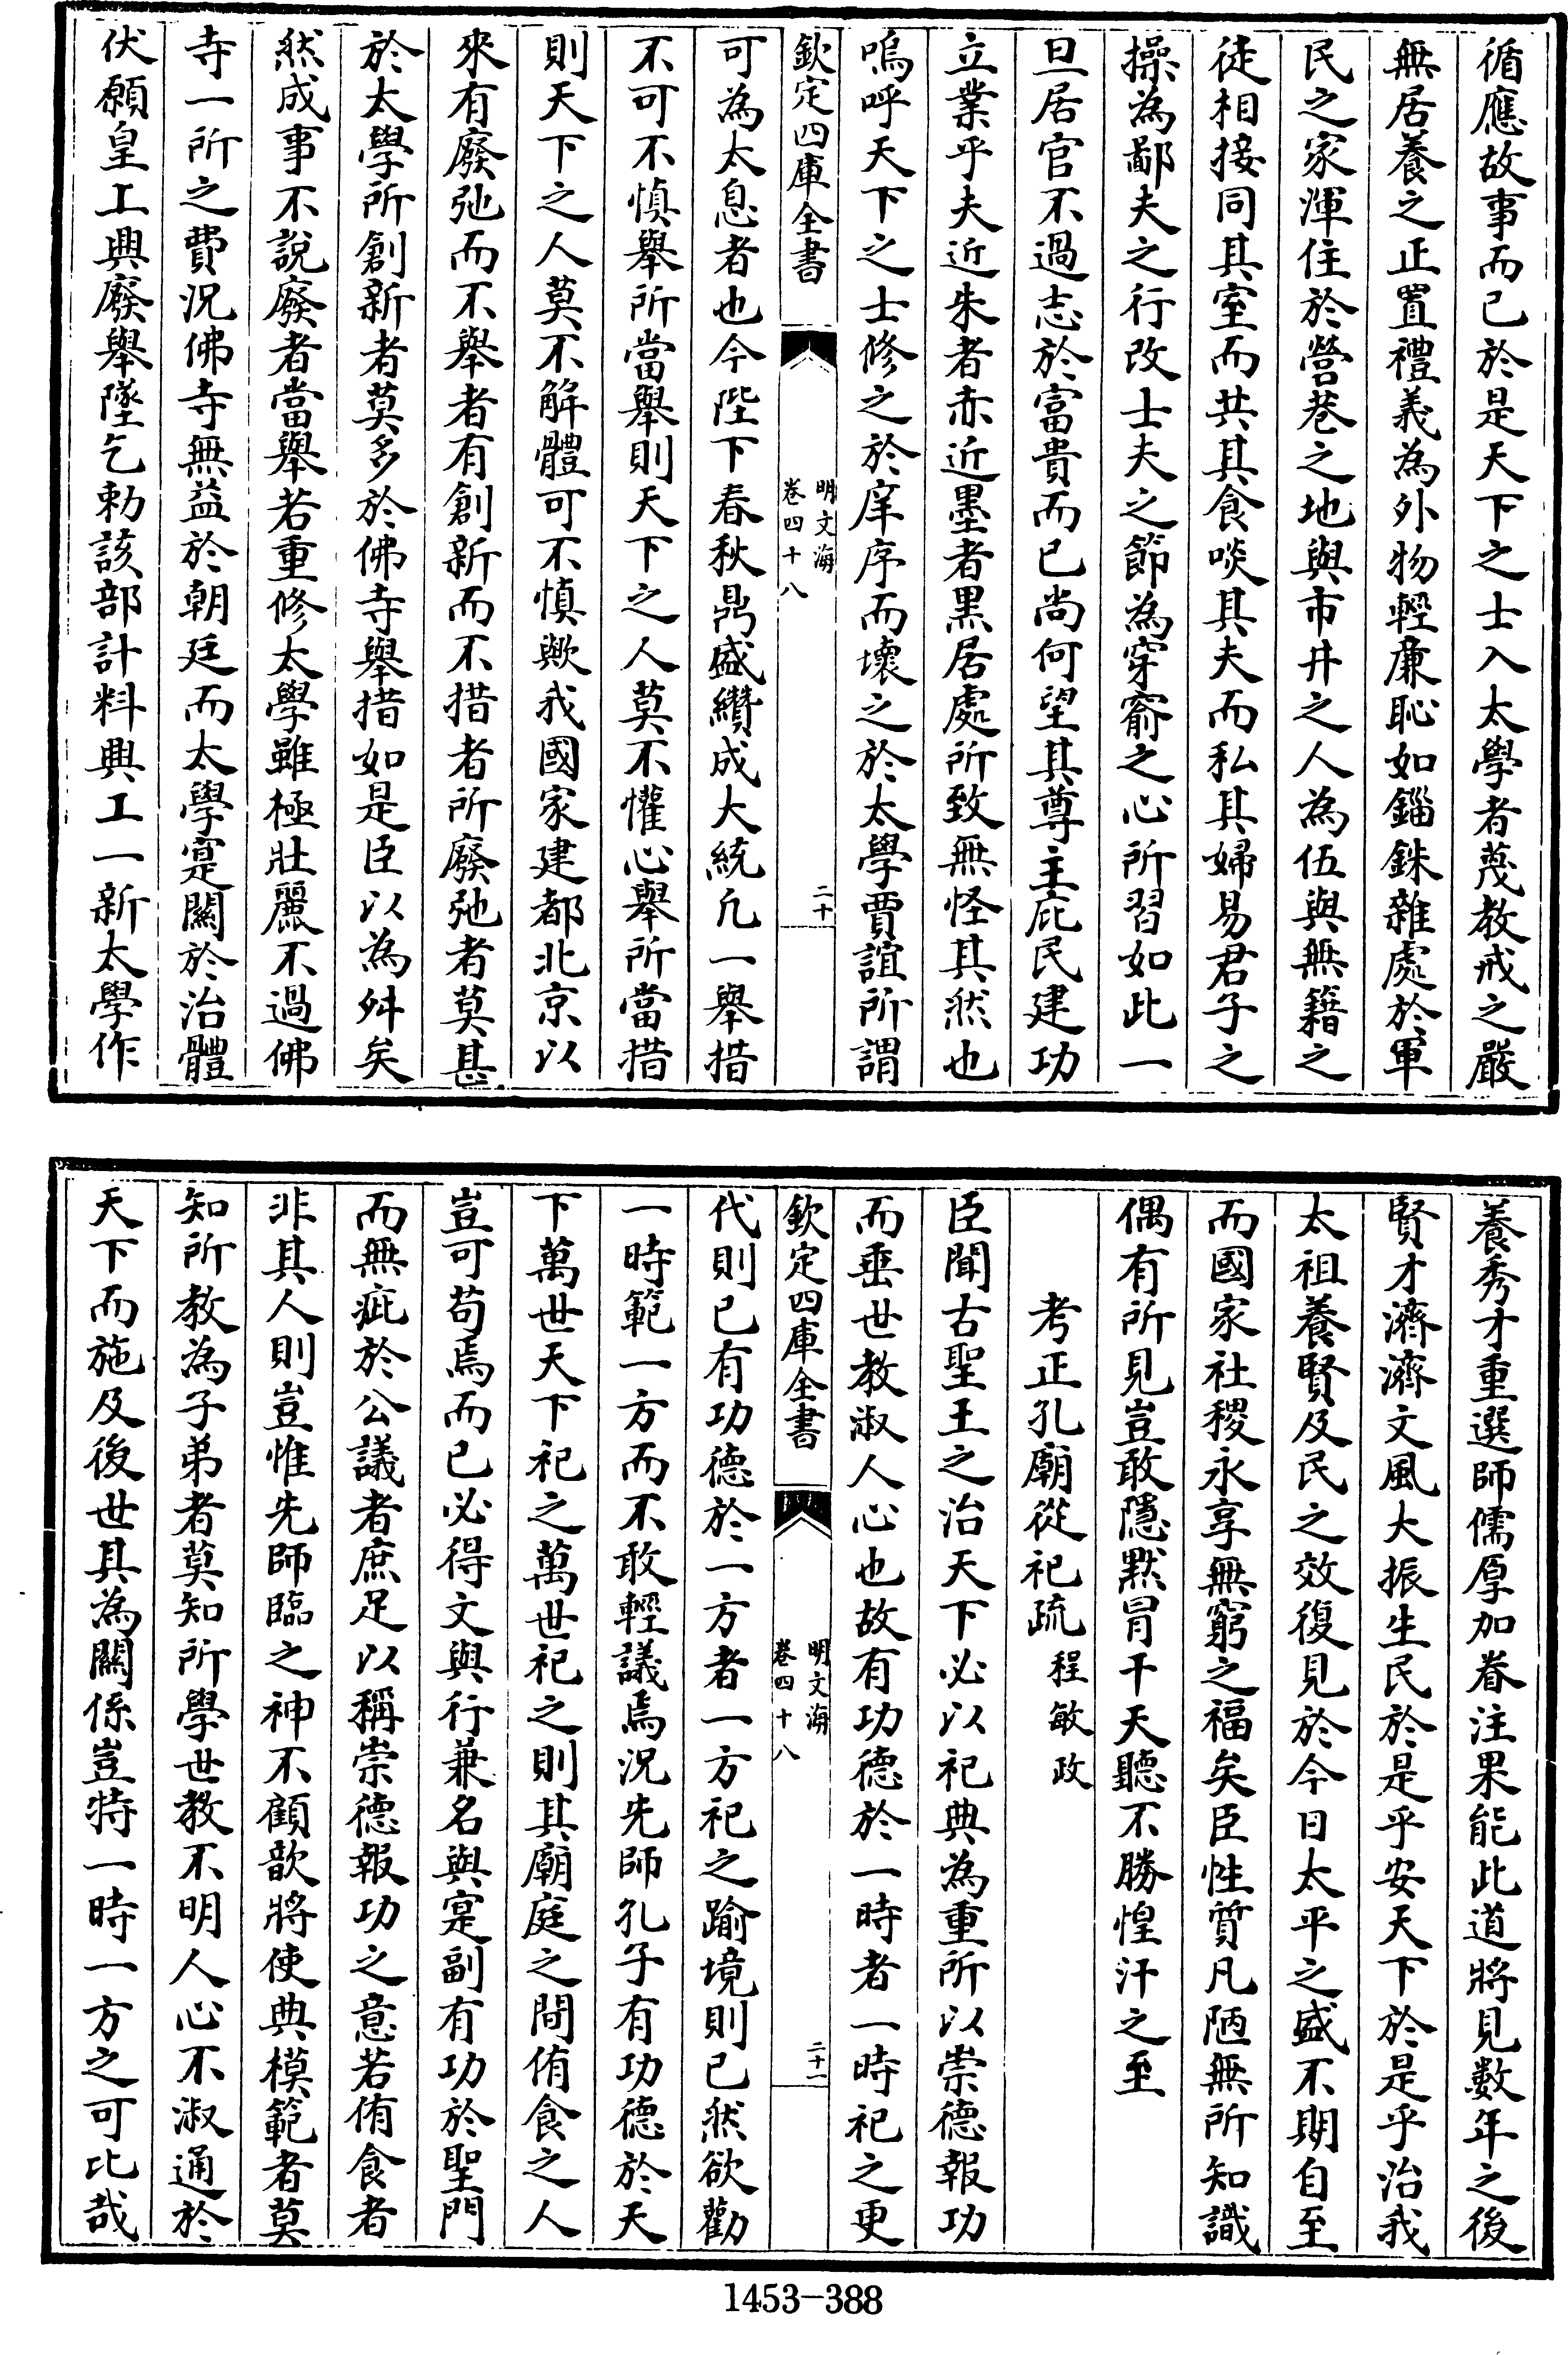 循應故事而已於是天下之士入太學者蔑教戒之嚴
無居養之正置禮義為外物輕亷恥如錙銖雜處於軍
民之家渾住於營巷之地與市井之人為伍與無籍之
徒相接同其室而共其食啖其夫而私其婦易君子之
操為鄙夫之行改士夫之節為穿窬之心所習如此一
旦居官不過志於富貴而已尚何望其尊主庇民建功
立業乎夫近朱者赤近墨者黒居處所致無怪其然也
嗚呼天下之士修之於庠序而壞之於太學賈誼所謂
欽定四庫全書
明文海
卷四十八
二十
可為太息者也今陛下春秋鼎盛纘成大統凢一舉措
不可不慎舉所當舉則天下之人莫不懽心舉所當措
則天下之人莫不解體可不慎歟我國家建都北京以
來有廢弛而不舉者有創新而不措者所廢弛者莫甚
於太學所創新者莫多於佛寺舉措如是臣以為舛矣
然成事不說廢者當舉若重修太學雖極壯麗不過佛
寺一所之費況佛寺無益於朝廷而太學寔關於治體
伏願皇工興廢舉墜乞勅該部計料興工一新太學作
養秀才重選師儒厚加眷注果能此道將見數年之後
賢才濟濟文風大振生民於是乎安天下於是乎治我
太祖養賢及民之效復見於今日太平之盛不期自至
而國家社稷永享無窮之福矣臣性質凡陋無所知識
偶有所見豈敢隱默冒干天聽不勝惶汗之至
考正孔廟從祀疏 程敏政
臣聞古聖王之治天下必以祀典為重所以崇德報功
而垂世教淑人心也故有功德於一時者一時祀之更
欽定四庫全書
明文海
卷四十八
二十一
代則已有功德於一方者一方祀之踰境則已然欲勸
一時範一方而不敢輕議焉況先師孔子有功德於天
下萬世天下祀之萬世祀之則其廟庭之間侑食之人
豈可苟焉而已必得文與行兼名與寔副有功於聖門
而無疵於公議者庶足以稱崇德報功之意若侑食者
非其人則豈惟先師臨之神不顧歆將使典模範者莫
知所教為子弟者莫知所學世教不明人心不淑通於
天下而施及後世其為關係豈特一時一方之可比哉
1453-388